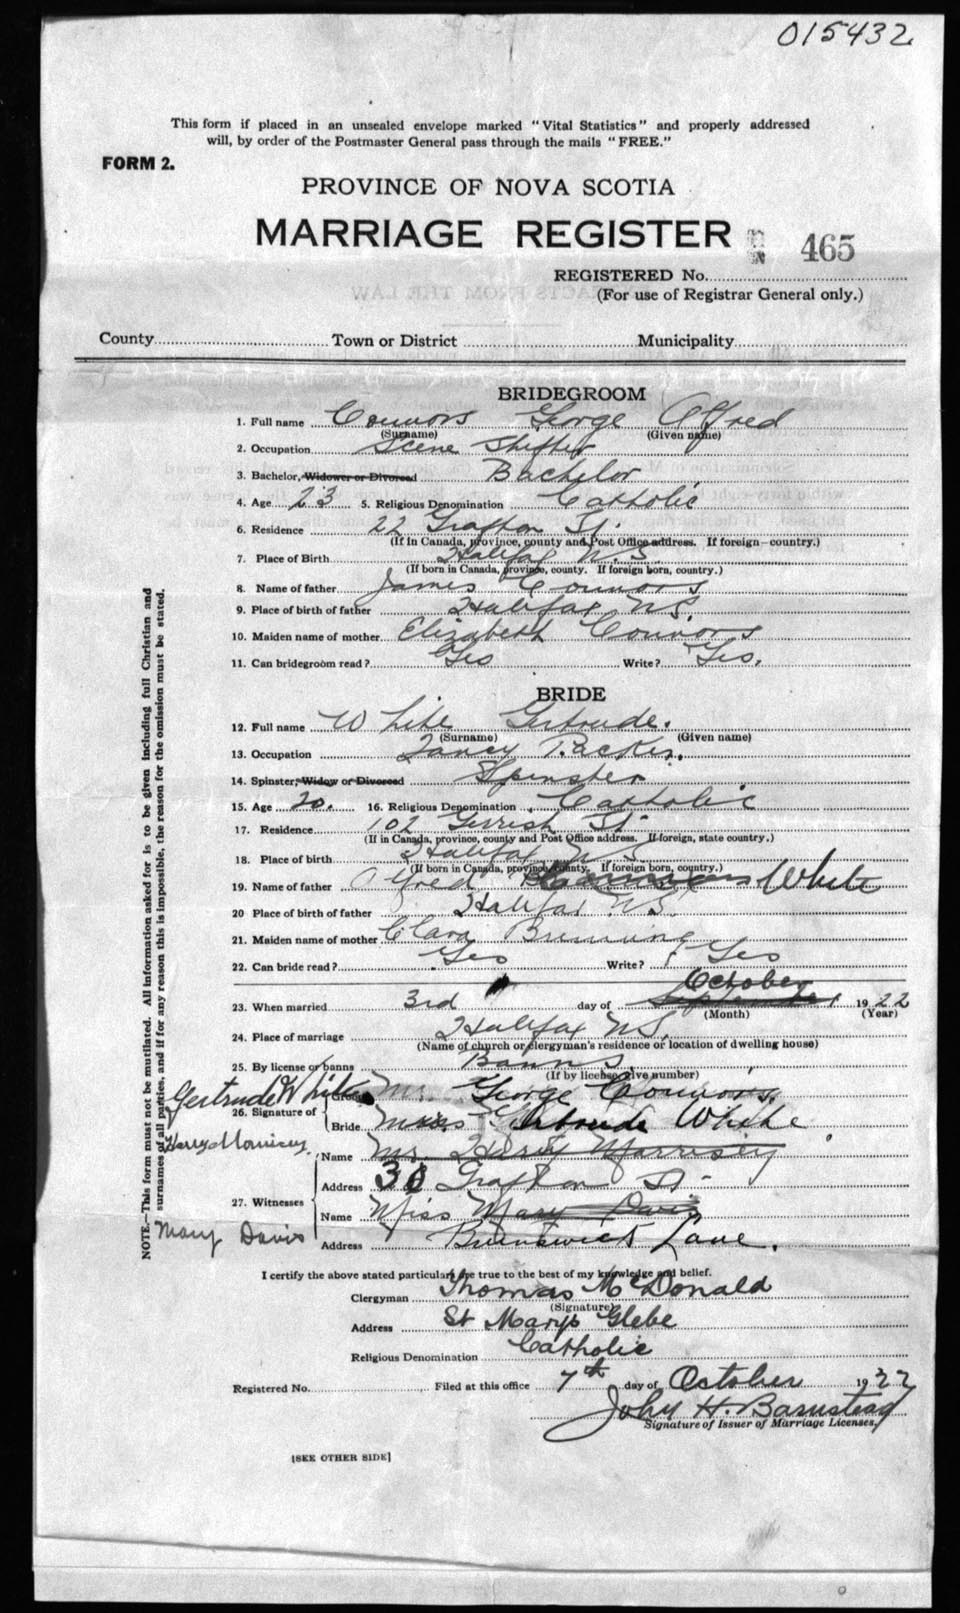 015432
This form if placed in an unsealed envelope marked "Vital Statistics" and properly addressed
will, by order of the Postmaster General pass through the mails "FREE."
FORM 2.
PROVINCE OF NOVA SCOTIA
MARRIAGE REGISTER
465
REGISTERED No.
(For use of Registrar General only.)
County Town or District Municipality
BRIDEGROOM
1. Full name Connors George Alfred
(Surname) (Given name)
2. Occupation Scene Shifter
3. Bachelor, Widower or Divorced Bachelor
4. Age 23 5. Religious Denomination Catholic
6. Residence 22 Grafton St.
(If in Canada, province, county and Post Office address. If foreign—country.)
7. Place of Birth Halifax N.S
(If born in Canada, province, county. If foreign born, country.)
8. Name of father James Connors
9. Place of birth of father Halifax N.S.
10. Maiden name of mother Elizabeth Connors
11. Can bridegroom read? Yes Write? Yes.
BRIDE
12. Full name White Gertrude.
(Surname) (Given name)
13. Occupation Fancy Packer.
14. Spinster, Widow or Divorced Spinster
15. Age 20. 16. Religious Denomination Catholic
17. Residence 102 Gerrish St.
(If in Canada, province, county and Post Office address. If foreign, state country.)
18. Place of birth Halifax N.S
(If born in Canada, province, county. If foreign born, country.)
19. Name of father Alfred White
20 Place of birth of father Halifax N.S.
21. Maiden name of mother Clara
22. Can bride read? Yes Write? Yes
October
23. When married 3rd day of September 1922
(Month) (Year)
24. Place of marriage Halifax N.S.
(Name of church or clergyman's residence or location of dwelling house)
25. By license or banns Banns
(If by license give number)
Gertrude White
26. Signature of Groom Mr. George Connors.
Bride Miss Gertrude White
Harry Morrisey
27. Witnesses
Name Mr. Harry Morrisey
Address Grafton St.
Name Miss Mary Davis
Mary Davis
Address Brunswick Lane.
I certify the above stated particulars are true to the best of my knowledge and belief.
Clergyman Thomas McDonald
(Signature)
Address St Marys Glebe
Religious Denomination Catholic
Registered No. Filed at this office 7th day of October 1922
John H. Barnstead
Signature of Issuer of Marriage Licenses.
[SEE OTHER SIDE]
NOTE.—This form must not be mutilated. All information asked for is to be given including full Christian and
surnames of all parties, and if for any reason this is impossible, the reason for the omission must be stated.